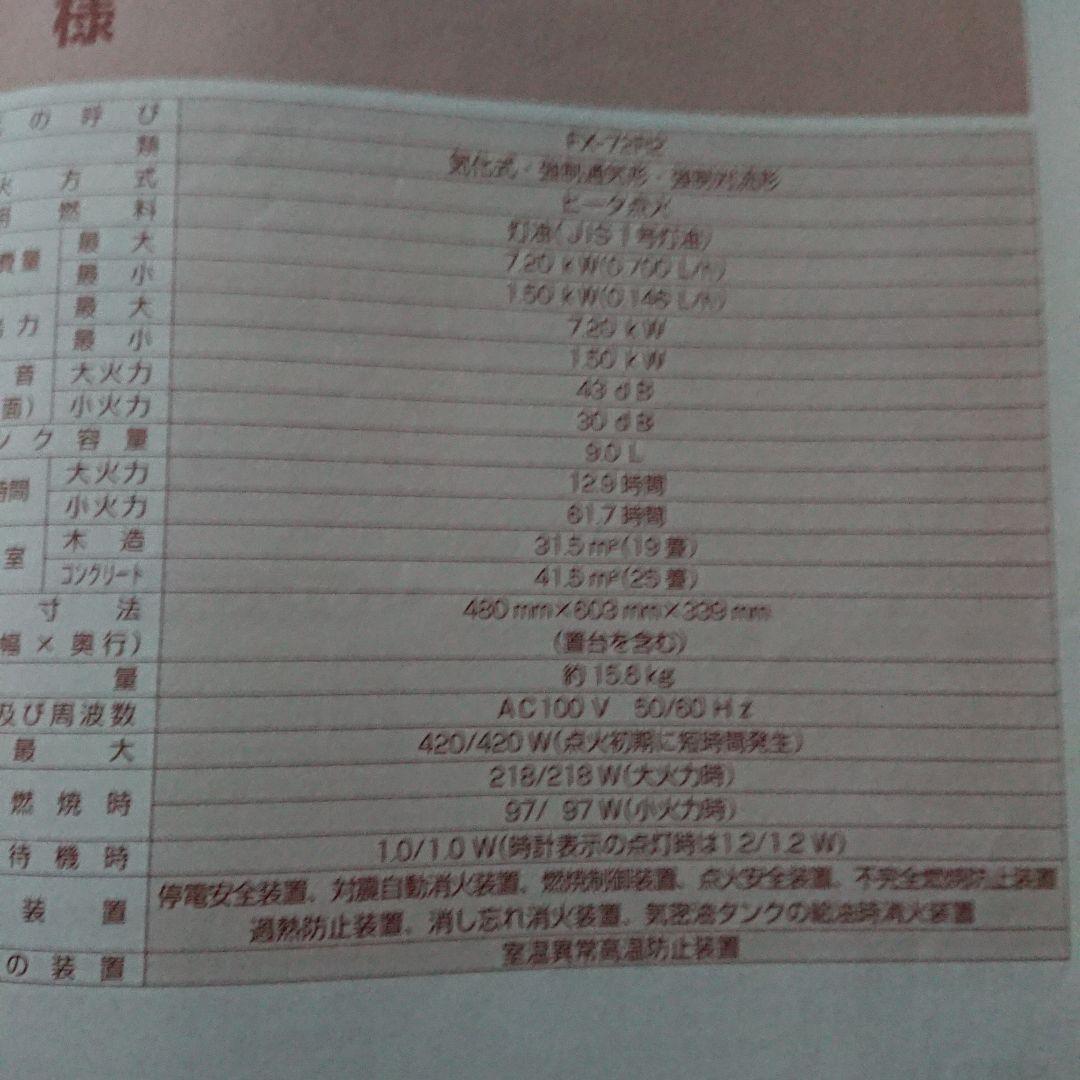 様
の呼び
類
気化式・強制通気形・強制対流形
方式 ヒータ点火
燃料 灯油(JIS 1号灯油)
費量 最大 7.20 kW(0.700 L/h)
最小 1.50 kW(0.146 L/h)
力 最大 7.20 kW
最小 1.50 kW
音 大火力 43 dB
面) 小火力 30 dB
ンク容量 9.0 L
時間 大火力 12.9 時間
小火力 61.7 時間
室 木造 31.5 m²(19畳)
コンクリート 41.5 m²(25畳)
寸法 480 mm×603 mm×339 mm
幅×奥行) (置台を含む)
量 約 15.6 kg
及び周波数 AC100 V 50/60 Hz
最大 420/420 W(点火初期に短時間発生)
燃焼時 218/218 W(大火力時)
97/ 97 W(小火力時)
待機時 1.0/1.0 W(時計表示の点灯時は1.2/1.2 W)
装置 停電安全装置、対震自動消火装置、燃焼制御装置、点火安全装置、不完全燃焼防止装置
過熱防止装置、消し忘れ消火装置、気密油タンクの給油時消火装置
の装置 室温異常高温防止装置